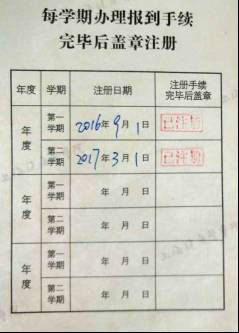 每学期办理报到手续
完毕后盖章注册
年度 学期 注册日期 注册手续完毕后盖章
年度 第一学期 2016年9月1日 已注册
第二学期 2017年3月1日 已注册
年度 第一学期 年 月 日
第二学期 年 月 日
年度 第一学期 年 月 日
第二学期 年 月 日